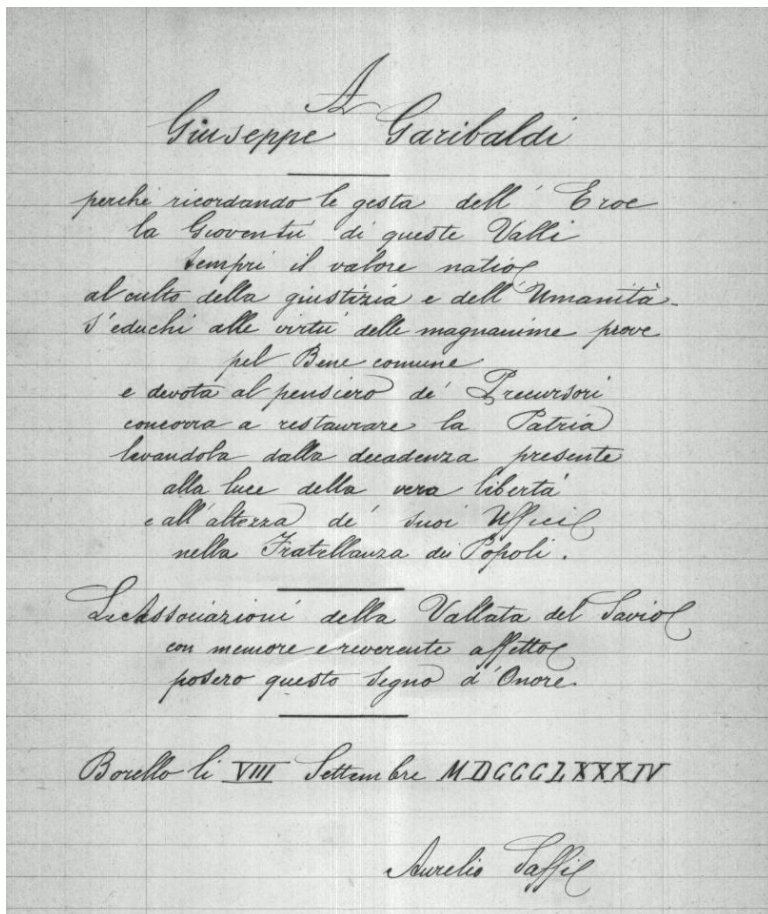 A
Giuseppe Garibaldi
perchè ricordando le gesta dell' Eroe
la Gioventù di queste Valli
tempri il valore natio
al culto della giustizia e dell' Umanità
s'educhi alle virtù delle magnanime prove
pel Bene comune
e devota al pensiero de' Precursori
concorra a restaurare la Patria
levandola dalla decadenza presente
alla luce della vera libertà
e all'altezza de' suoi Uffici
nella Fratellanza dei Popoli.
Le Associazioni della Vallata del Savio
con memore e reverente affetto
posero questo segno d'Onore.
Borello li VIII Settembre MDCCCLXXXIV
Aurelio Saffi